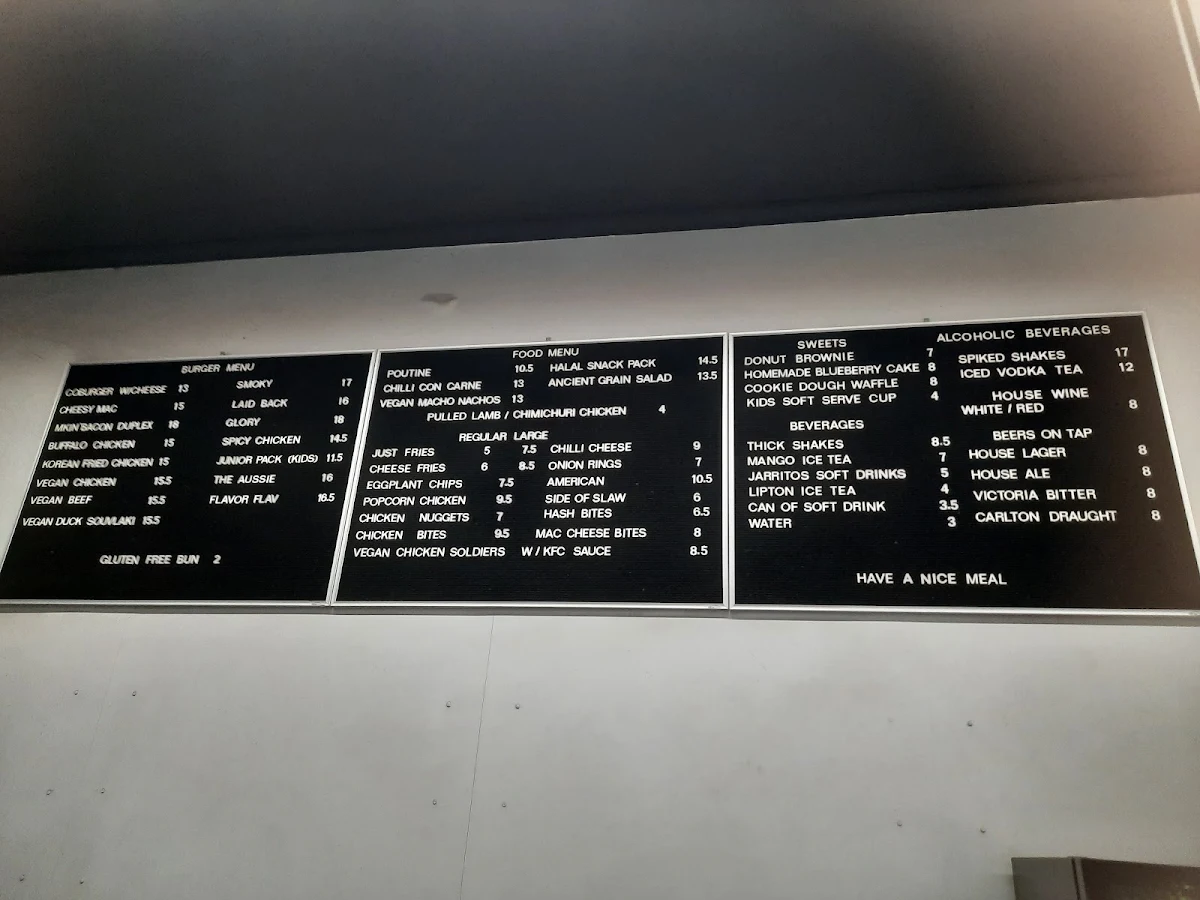 BURGER MENU
COBURGER W/CHEESE 13
CHEESY MAC 15
MKIN'BACON DUPLEX 18
BUFFALO CHICKEN 15
KOREAN FRIED CHICKEN 15
VEGAN CHICKEN 15.5
VEGAN BEEF 15.5
VEGAN DUCK SOUVLAKI 15.5
SMOKY 17
LAID BACK 16
GLORY 18
SPICY CHICKEN 14.5
JUNIOR PACK (KIDS) 11.5
THE AUSSIE 16
FLAVOR FLAV 16.5
GLUTEN FREE BUN 2
FOOD MENU
POUTINE 10.5 HALAL SNACK PACK 14.5
CHILLI CON CARNE 13 ANCIENT GRAIN SALAD 13.5
VEGAN MACHO NACHOS 13
PULLED LAMB / CHIMICHURI CHICKEN 4
REGULAR LARGE
JUST FRIES 5 7.5 CHILLI CHEESE 9
CHEESE FRIES 6 8.5 ONION RINGS 7
EGGPLANT CHIPS 7.5 AMERICAN 10.5
POPCORN CHICKEN 9.5 SIDE OF SLAW 6
CHICKEN NUGGETS 7 HASH BITES 6.5
CHICKEN BITES 9.5 MAC CHEESE BITES 8
VEGAN CHICKEN SOLDIERS W/KFC SAUCE 8.5
SWEETS
DONUT BROWNIE 7
HOMEMADE BLUEBERRY CAKE 8
COOKIE DOUGH WAFFLE 8
KIDS SOFT SERVE CUP 4
BEVERAGES
THICK SHAKES 8.5
MANGO ICE TEA 7
JARRITOS SOFT DRINKS 5
LIPTON ICE TEA 4
CAN OF SOFT DRINK 3.5
WATER 3
ALCOHOLIC BEVERAGES
SPIKED SHAKES 17
ICED VODKA TEA 12
HOUSE WINE
WHITE / RED 8
BEERS ON TAP
HOUSE LAGER 8
HOUSE ALE 8
VICTORIA BITTER 8
CARLTON DRAUGHT 8
HAVE A NICE MEAL